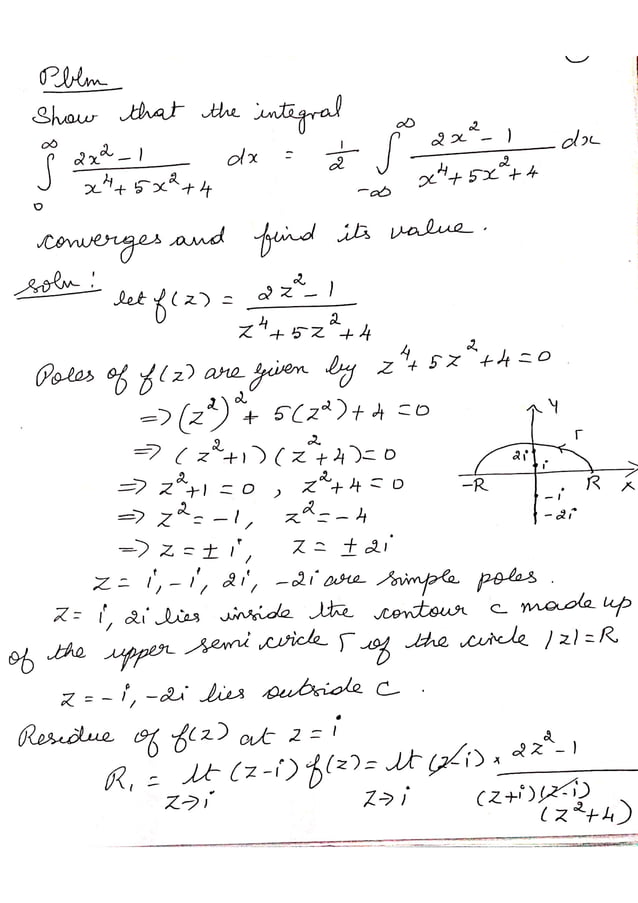 Pblm
Show that the integral
∞ ∫ 0 (2x² - 1)/(x⁴ + 5x² + 4) dx = 1/2 ∞ ∫ -∞ (2x² - 1)/(x⁴ + 5x² + 4) dx
converges and find its value.
Soln: let f(z) = (2z² - 1)/(z⁴ + 5z² + 4)
Poles of f(z) are given by z⁴ + 5z² + 4 = 0
⇒ (z²)² + 5(z²) + 4 = 0
⇒ (z² + 1)(z² + 4) = 0
⇒ z² + 1 = 0, z² + 4 = 0
⇒ z² = -1, z² = -4
⇒ z = ± i, z = ± 2i
Y
Γ
2i
i
-R R X
-i
-2i
z = i, -i, 2i, -2i are simple poles.
z = i, 2i lies inside the contour c made up
of the upper semi circle Γ of the circle |z| = R
z = -i, -2i lies outside C.
Residue of f(z) at z = i
R₁ = lt z→i (z-i) f(z) = lt z→i (z-i) × (2z² - 1)/((z+i)(z-i)(z² + 4))